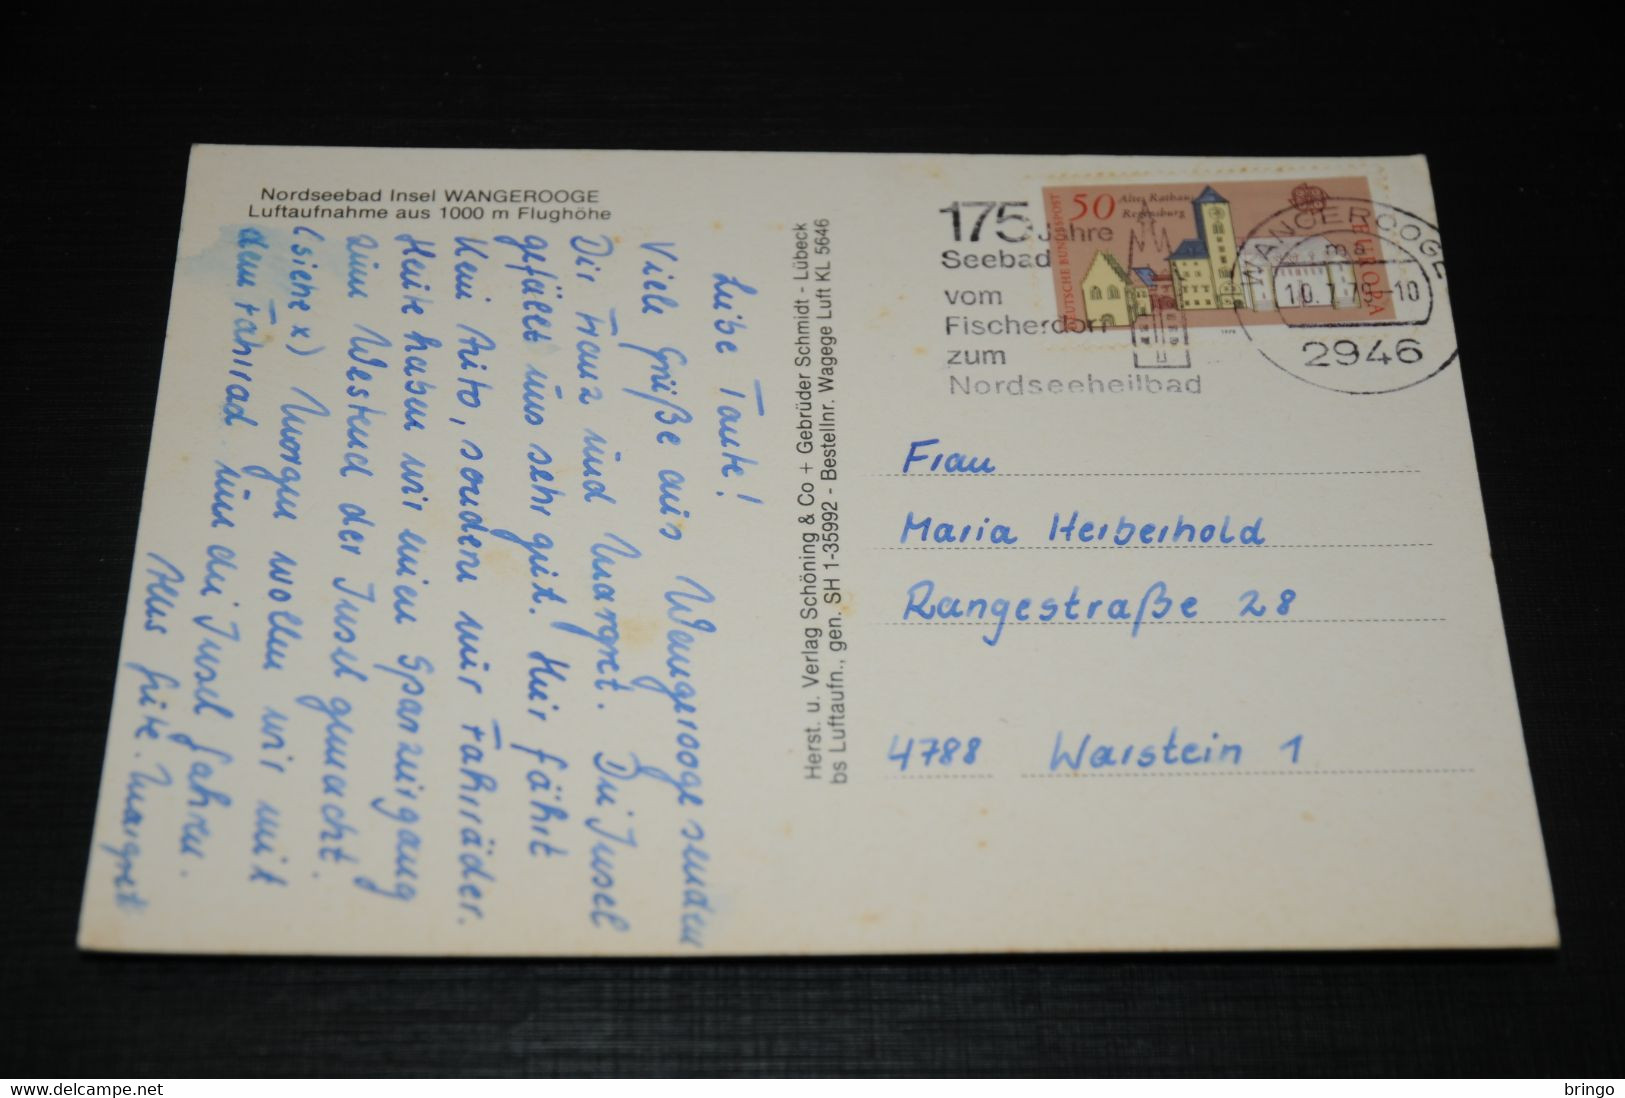 Nordseebad Insel WANGEROOGE
Luftaufnahme aus 1000 m Flughöhe
Liebe Tante!
Viele Grüße aus Wangerooge senden
Dir Franz und Margret. Die Insel
gefällt uns sehr gut. Hier fährt
kein Auto, sondern nur Fahrräder.
Heute haben wir einen Spaziergang
zum Westend der Insel gemacht.
(siehe x) Morgen wollen wir mit
dem Fahrrad um die Insel fahren.
Alles Gute. Margret
Herst. u. Verlag Schöning & Co + Gebrüder Schmidt - Lübeck
bs Luftaufn., gen. SH 1-35992 - Bestellnr. Wagege Luft KL 5646
175 Jahre
Seebad
vom
Fischerdorf
zum
Nordseeheilbad
DEUTSCHE BUNDESPOST
50
Altes Rathaus
Regensburg
EUROPA
1978
WANGEROOGE
ma
10.7.78-10
2946
Frau
Maria Herberhold
Rangestraße 28
4788 Warstein 1
bringo
delcampe.net